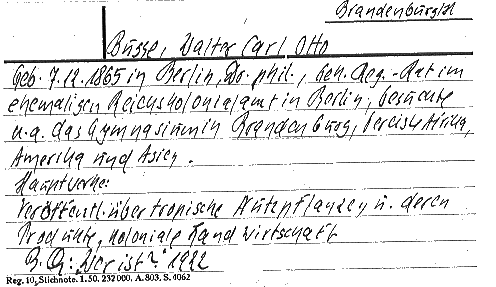 Brandenburgisch
Busse, Walter Carl Otto
Geb. 7.12.1865 in Berlin, Dr. phil., Geh. Reg.-Rat im
ehemaligen Reichskolonialamt in Berlin, besuchte
u.a. das Gymnasium in Brandenburg, bereiste Afrika,
Amerika und Asien.
Hauptwerke:
Veröffentl. über tropische Nutzpflanzen u. deren
Produkte, koloniale Landwirtschaft
B. Q: "Wer ist?" 1922
Reg. 10, Stichnote. 1. 50. 232000. A. 803. S. 4062